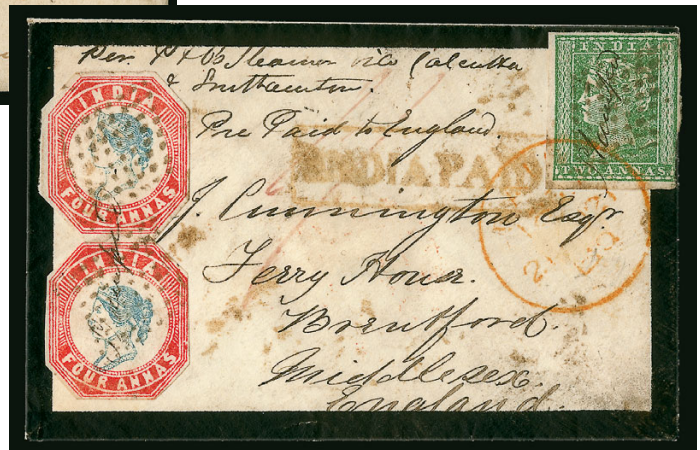 Per P & O's Steamer via Calcutta
& Southamton.
Pre Paid to England.
INDIA PAID
J. Cunnington Esqr.
Ferry House.
Brentford.
Middlesex.
England.
INDIA
FOUR ANNAS
INDIA
FOUR ANNAS
INDIA
TWO ANNAS.